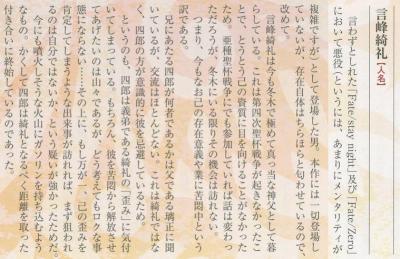 言峰綺礼【人名】
言わずとしれた「Fate/stay night」及び「Fate/Zero」
において（悪役）というには、あまりにメンタリティが
複雑ですが）として登場した男。本作には一切登場し
ていないが、存在自体はちらほらと匂わせているので、
改めて。
言峰綺礼は今も冬木で極めて真っ当な神父として暮
らしている。これは第四次聖杯戦争が起きなかったこ
とで、とうとう己の資質に目を向けることがなかった
ため。亜種聖杯戦争にでも参加していれば話は変わっ
ただろうが、冬木にいる限りその機会は訪れない。
つまり、今もなお己の存在意義や業に苦悶中という
訳である。
兄にあたる四郎が何者であるかは父である璃正に聞
いているが、交流はほとんどない。これは綺礼ではな
く、四郎の方が意識的に彼を忌避しているため。
というのも、四郎は義弟である綺礼の「歪み」に気付
いてしまっている。もちろん、彼を苦悶から解放させ
てあげないのは山々であるが、どう考えてもロクな事
態にならない……その上に、もし万が一、己の歪みを
肯定してしまうような出来事が訪れば、まず狙われ
るのは自分ではないか、という疑いが強かったためだ。
今にも噴火しそうな火山にガソリンを持ち込むよう
なもの。かくして四郎は綺礼となるべく距離を取った
付き合いに終始しているのであった。